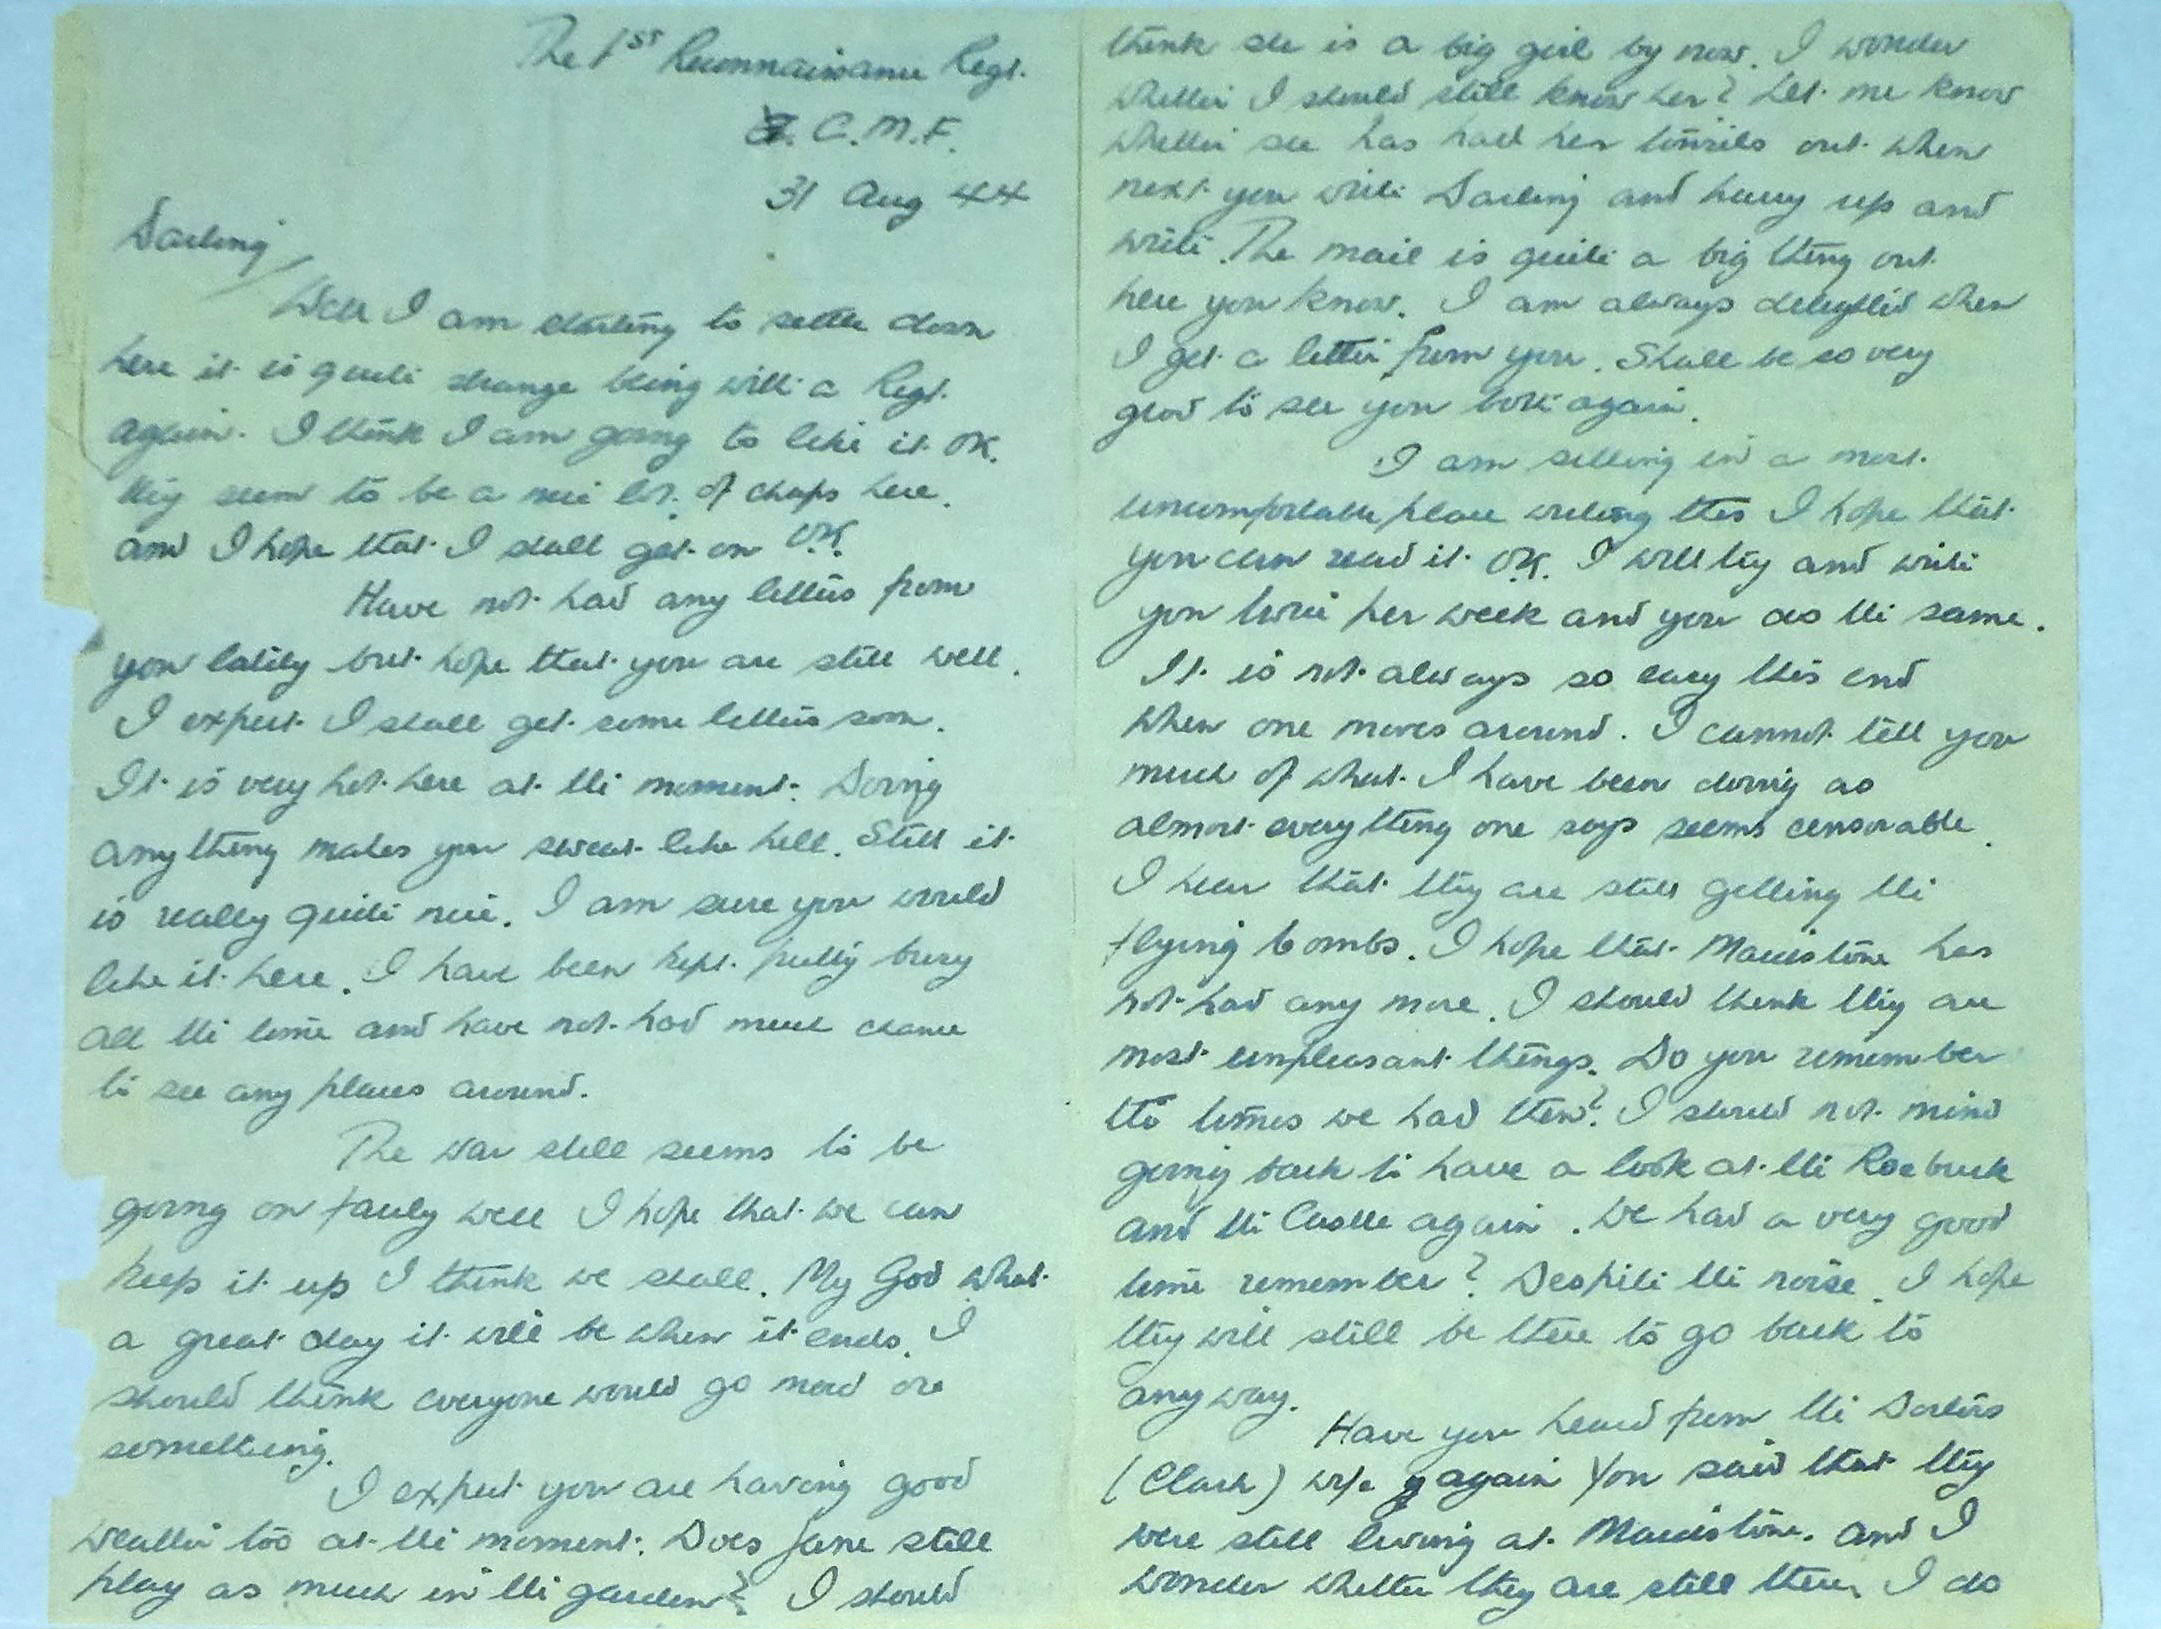 The 1st Reconnaissance Regt.
C.M.F.
31 Aug 44
Darling
Well I am starting to settle down
here it is quite strange being with a Regt.
again. I think I am going to like it OK.
they seem to be a nice lot of chaps here.
and I hope that I shall get on O.K.
Have not had any letters from
you lately but hope that you are still well.
I expect I shall get some letters soon.
It is very hot here at the moment. Doing
anything makes you sweat like hell. Still it
is really quite nice. I am sure you would
like it here. I have been kept pretty busy
all the time and have not had much chance
to see any places around.
The war still seems to be
going on fairly well I hope that we can
keep it up I think we shall. My God what
a great day it will be when it ends. I
should think everyone would go mad or
something.
I expect you are having good
weather too at the moment. Does Jane still
play as much in the garden? I should
think she is a big girl by now. I wonder
whether I should still know her? Let me know
whether she has had her tonsils out when
next you write Darling and hurry up and
write. The mail is quite a big thing out
here you know. I am always delighted when
I get a letter from you. Shall be so very
glad to see you both again.
I am sitting in a most
uncomfortable place writing this I hope that
you can read it OK. I will try and write
you twice per week and you do the same.
It is not always so easy this end
when one moves around. I cannot tell you
much of what I have been doing as
almost everything one says seems censorable.
I hear that they are still getting the
flying bombs. I hope that Maidstone has
not had any more. I should think they are
most unpleasant things. Do you remember
the times we had then? I should not mind
going back to have a look at the Roebuck
and the Castle again. We had a very good
time remember? Despite the noise. I hope
they will still be there to go back to
anyway.
Have you heard from the Doctors
(Clark) wife again You said that they
were still living at Maidstone. And I
wonder whether they are still there I do